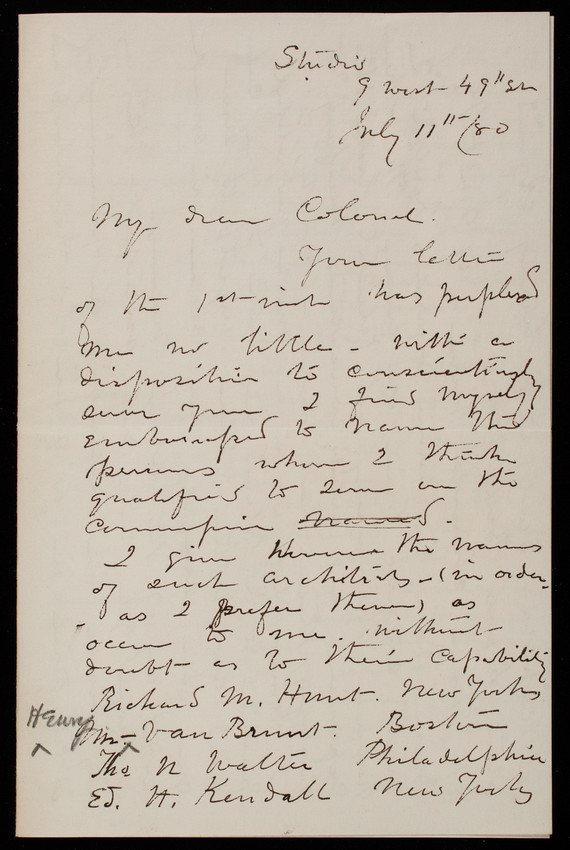 Studio
9 west 49th St
July 11th /80
My dear Colonel.
Your letter
of the 1st inst has perplexed
me no little - with a
disposition to conscientiously
serve you I find myself
embarrassed to name the
persons whom I think
qualified to serve on the
commission named.
I give herewith the names
of such architects - (in order
- as I prefer them) as
occur to me. without
doubt as to their capability
Richard M. Hunt. New York
Henry
Mr Van Brunt. Boston
Tho U Walter Philadelphia
Ed. H. Kendall New York